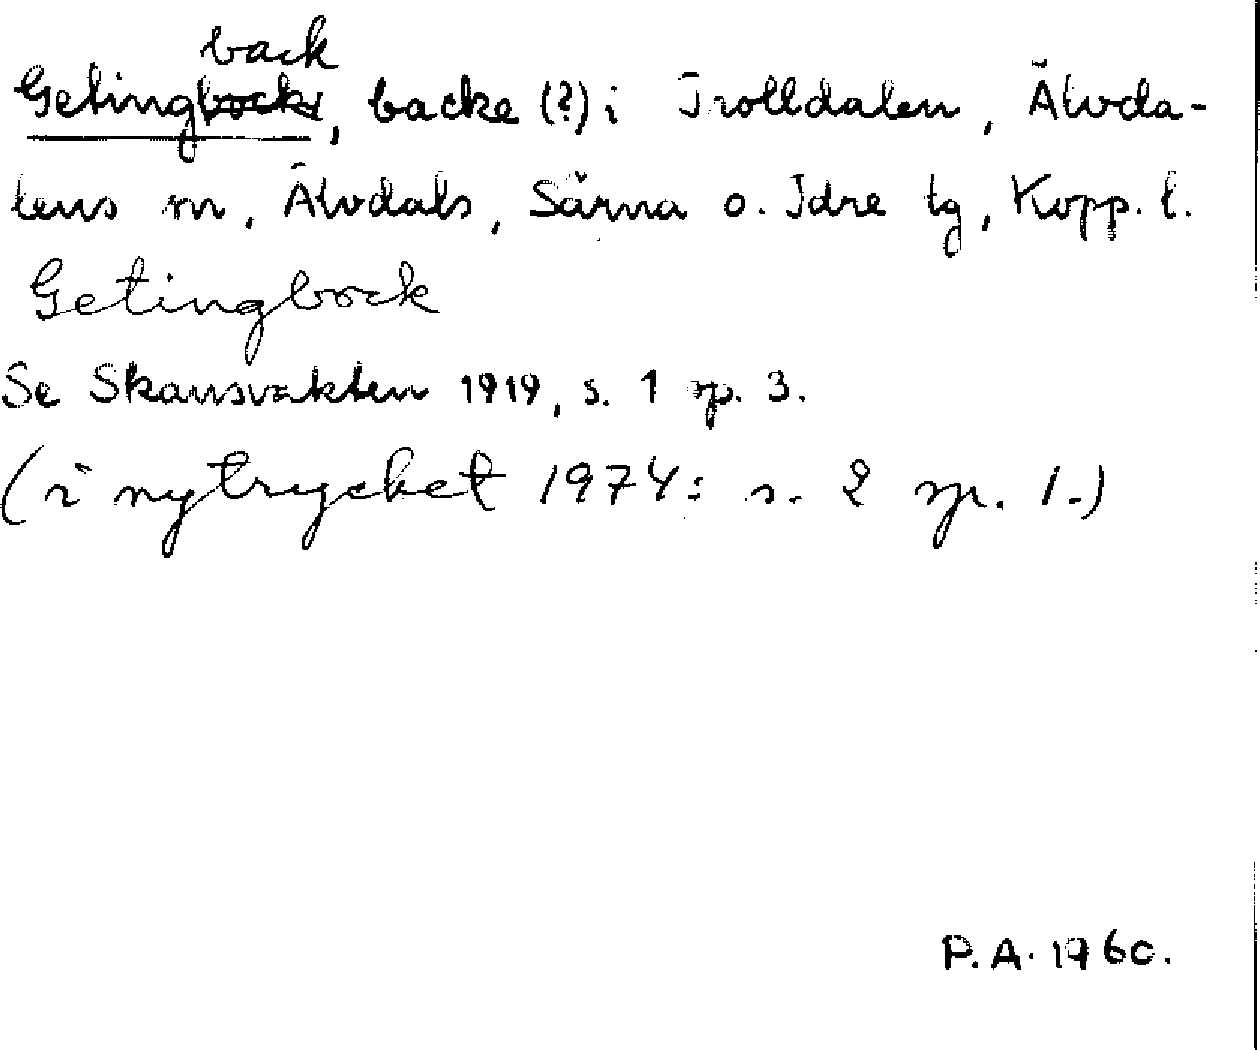 back
Getingbock, backe (?) i Trolldalen, Älvda-
lens sn, Älvdals, Särna o. Idre tg, Kopp. l.
Getingbock
Se Skansvakten 1919, s. 1 sp. 3.
(i nytrycket 1974: s. 2 sp. 1.)
P.A. 1960.